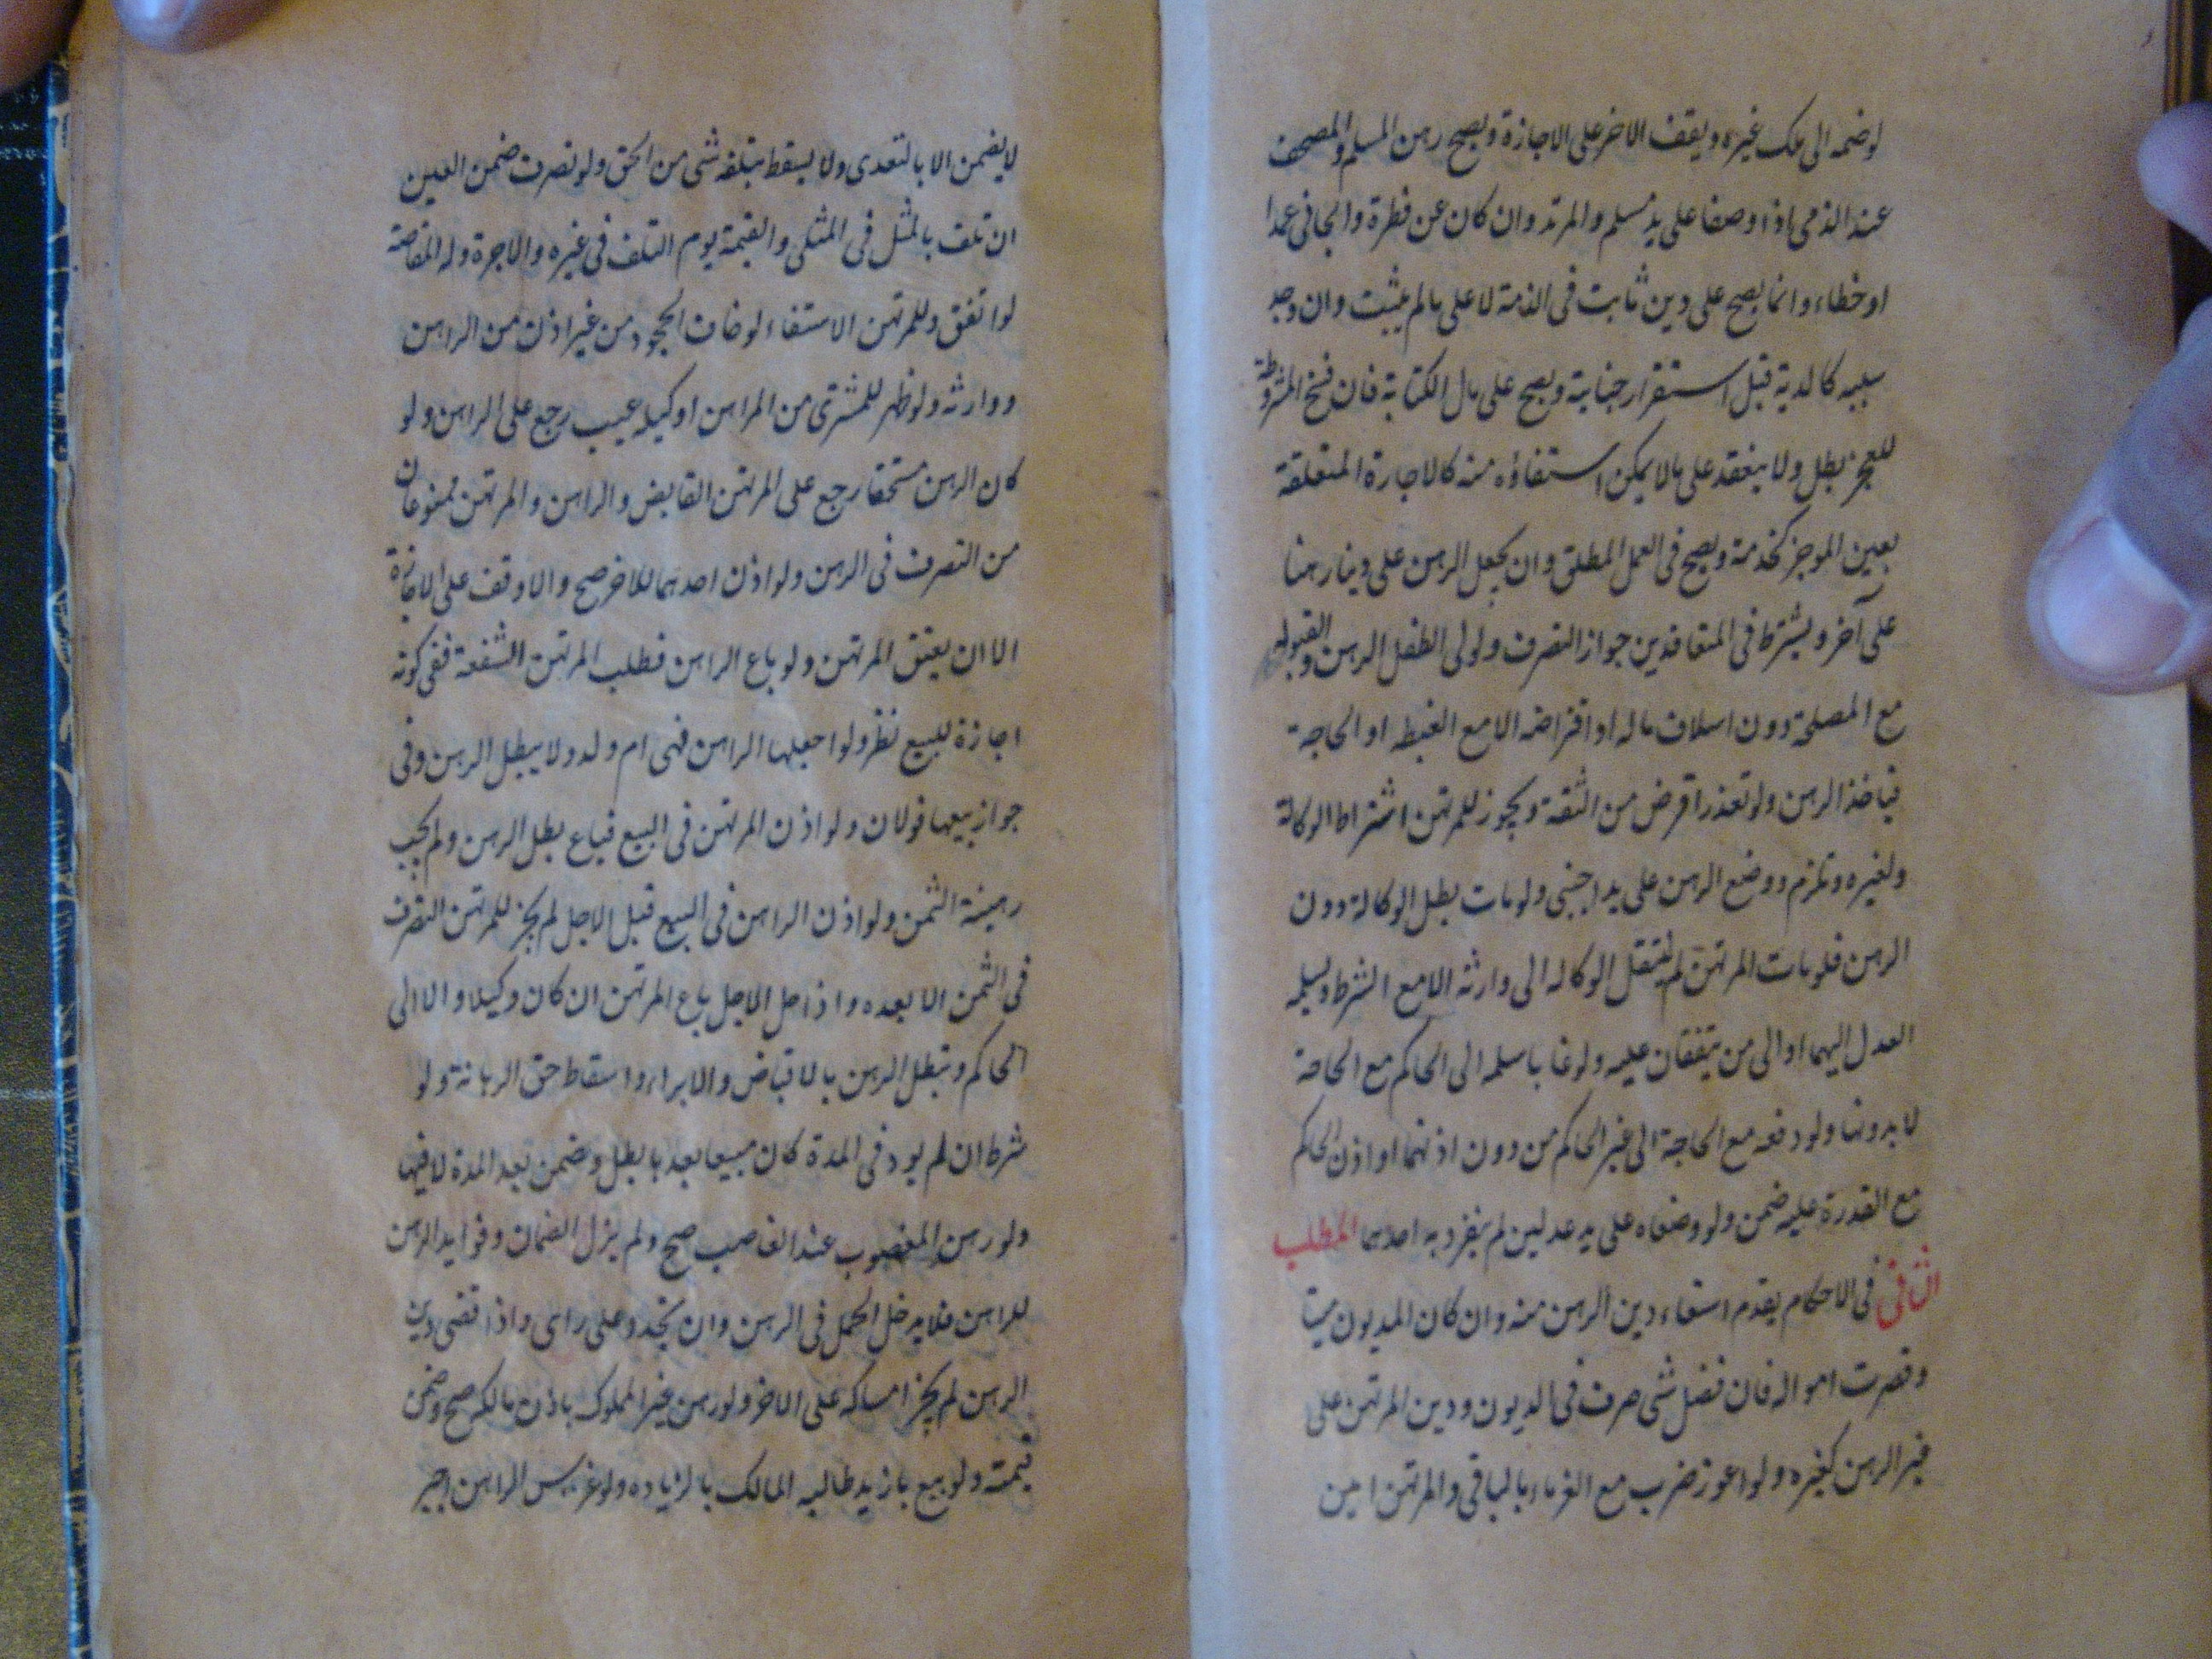 لو ضمه الى ملك غيره ويقف الاخر على الاجازة ويصح رهن المسلم والمصحف
عند الذمى اذا وضعا على يد مسلم والمرتد وان كان عن فطرة والجانى عمدا
او خطاء وانما يصح على دين ثابت فى الذمة لا على مالم يثبت وان وجد
سببه كالدية قبل استقرار جناية ويصح على مال الكتابة فان فسخ المشروطة
للعجز بطل ولا ينعقد على مالا يمكن استفاؤه منه كالاجارة المتعلقة
بعين الموجر كخدمة ويصح فى العمل المطلق وان يجعل الرهن على دينار رهنا
على آخر ويشترط فى المتعاقدين جواز التصرف ولولى الطفل الرهن والقبول
مع المصلحة دون اسلاف ماله او اقراضه الا مع الغبطه او الحاجة
فياخذ الرهن ولو تعذر اقرض من الثقة ويجوز للمرتهن اشتراط الوكالة
ولغيره وتلزم ووضع الرهن على يد اجنبى ولو مات بطل الوكالة دون
الرهن فلو مات المرتهن لم ينتقل الوكاله الى وارثه الا مع الشرط ويسلمه
العدل اليهما او الى من يتفقان عليه ولو غابا سلمه الى الحاكم مع الحاجة
لا بدونها ولو دفعه مع الحاجة الى غير الحاكم من دون اذنهما او اذن الحاكم
مع القدرة عليه ضمن ولو وضعاه على يد عدلين لم ينفرد به احدهما المطلب
الثانى فى الاحكام يقدم استفاء دين الرهن منه وان كان المديون ميتا
وقصرت امواله فان فضل شى صرف فى الديون ودين المرتهن على
غير الرهن كغيره ولو اعوز ضرب مع الغرماء بالباقى والمرتهن امين
لا يضمن الا بالتعدى ولا يسقط بتلفه شى من الحق ولو تصرف ضمن العين
ان تلف بالمثل فى المثلى والقيمة يوم التلف فى غيره والاجرة وله المقاصة
لو اتفق وللمرتهن الاستفاء لو خاف الجحود من غير اذن من الراهن
ووارثه ولو ظهر للمشترى من المراهن او وكيله عيب رجع على الراهن ولو
كان الرهن مستحقا رجع على المرتهن القابض والراهن والمرتهن ممنوعان
من التصرف فى الرهن ولو اذن احدهما للاخر صح والا وقف على الاجازة
الا ان يعتق المرتهن ولو باع الراهن فطلب المرتهن الشفعة ففى كونه
اجازة للبيع نظر ولو احبلها الراهن فهى ام ولد ولا يبطل الرهن وفى
جواز بيعها قولان ولو اذن المرتهن فى البيع فباع بطل الرهن ولم يجب
رهينة الثمن ولو اذن الراهن فى البيع قبل الاجل لم يجز للمرتهن التصرف
فى الثمن الا بعده واذا حل الاجل باع المرتهن ان كان وكيلا والا الى
الحاكم ويبطل الرهن بالاقباض والابراء واسقاط حق الرهانة ولو
شرط ان لم يود فى المدة كان مبيعا بعدها بطل وضمن بعد المدة لا فيها
ولو رهن المغصوب عند الغاصب صح ولم يزل الضمان وفوايد الرهن
للراهن فلا يدخل الحمل فى الرهن وان تجدد على راى واذا قضى دين
الرهن لم يجز امساكه على الاخر ولو رهن غير المملوك باذن مالكه صح وضمن
قيمته ولو بيع بازيد طالبه المالك بالزياده ولو غرس الراهن اجبر